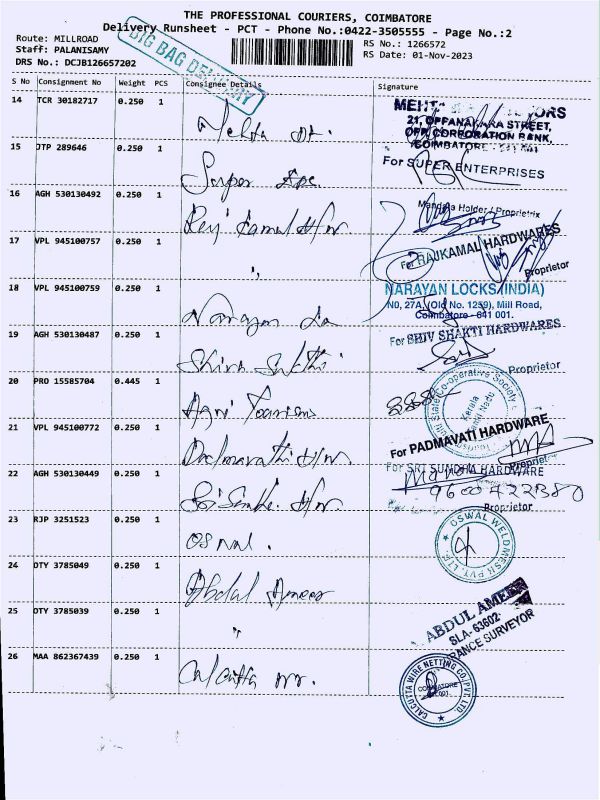 THE PROFESSIONAL COURIERS, COIMBATORE
Delivery Runsheet - PCT - Phone No.:0422-3505555 - Page No.:2
Route: MILLROAD
RS No.: 1266572
Staff: PALANISAMY
RS Date: 01-Nov-2023
DRS No.: DCJB126657202
BIG BAG DELIVERY
S No Consignment No Weight PCS Consignee Details Signature
14 TCR 30182717 0.250 1
Mehta
21, OPPANAKARA STREET,
OPP. CORPORATION BANK,
COIMBATORE - 641 001
15 JTP 289646 0.250 1
Super
For SUPER ENTERPRISES
16 AGH 530130492 0.250 1
Holder / Proprietrix
Raj Kamal H/w
For RAJKAMAL HARDWARES
Proprietor
17 VPL 945100757 0.250 1
"
18 VPL 945100759 0.250 1
NARAYAN LOCKS (INDIA)
NO, 27A, (Old No. 1259), Mill Road,
Coimbatore - 641 001.
Narayan
19 AGH 530130487 0.250 1
For SHIV SHAKTI HARDWARES
Proprietor
Shiva Sakthi
20 PRO 15585704 0.445 1
Agri Tourism
State Co-operative Society
Kerala
Tamil Nadu
21 VPL 945100772 0.250 1
For PADMAVATI HARDWARE
Proprietor
Padmavathi H/w
22 AGH 530130449 0.250 1
For SRI SUNDHA HARDWARE
9600722380
Proprietor
H/w.
23 RJP 3251523 0.250 1
Oswal.
OSWAL WELDMESH PVT. LTD.
24 DTY 3785048 0.250 1
Abdul Ameer
25 DTY 3785039 0.250 1
"
ABDUL AMEER
SLA-63602
SURVEYOR
26 MAA 862367439 0.250 1
Calcutta wr.
CALCUTTA WIRE NETTING CO. PVT. LTD
COIMBATORE